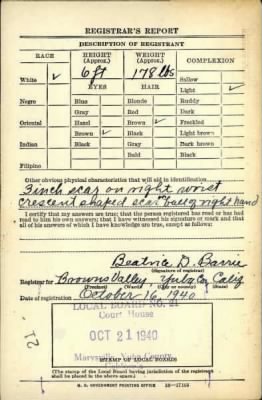 REGISTRAR'S REPORT
DESCRIPTION OF REGISTRANT
RACE HEIGHT (Approx.) WEIGHT (Approx.) COMPLEXION
White ✓ 6 ft 178 lbs Sallow
EYES HAIR Light ✓
Negro Blue Blonde Ruddy
Gray Red Dark
Oriental Hazel Brown ✓ Freckled
Brown ✓ Black Light brown
Indian Black Gray Dark brown
Bald Black
Filipino
Other obvious physical characteristics that will aid in identification
3 inch scar on right wrist
crescent shaped scar on ball of right hand
I certify that my answers are true; that the person registered has read or has had
read to him his own answers; that I have witnessed his signature or mark and that
all of his answers of which I have knowledge are true, except as follows:
Beatrice D. Barrie
(Signature of registrar)
Registrar for Browns Valley, Yuba Co, Calif
(Precinct) (Ward) (City or county) (State)
Date of registration October 16, 1940
LOCAL BOARD NO. 21
Court House
OCT 21 1940
Marysville, Yuba County
STAMP OF LOCAL BOARD
(The stamp of the Local Board having jurisdiction of the registrant
shall be placed in the above space.)
U. S. GOVERNMENT PRINTING OFFICE 16-17105
21